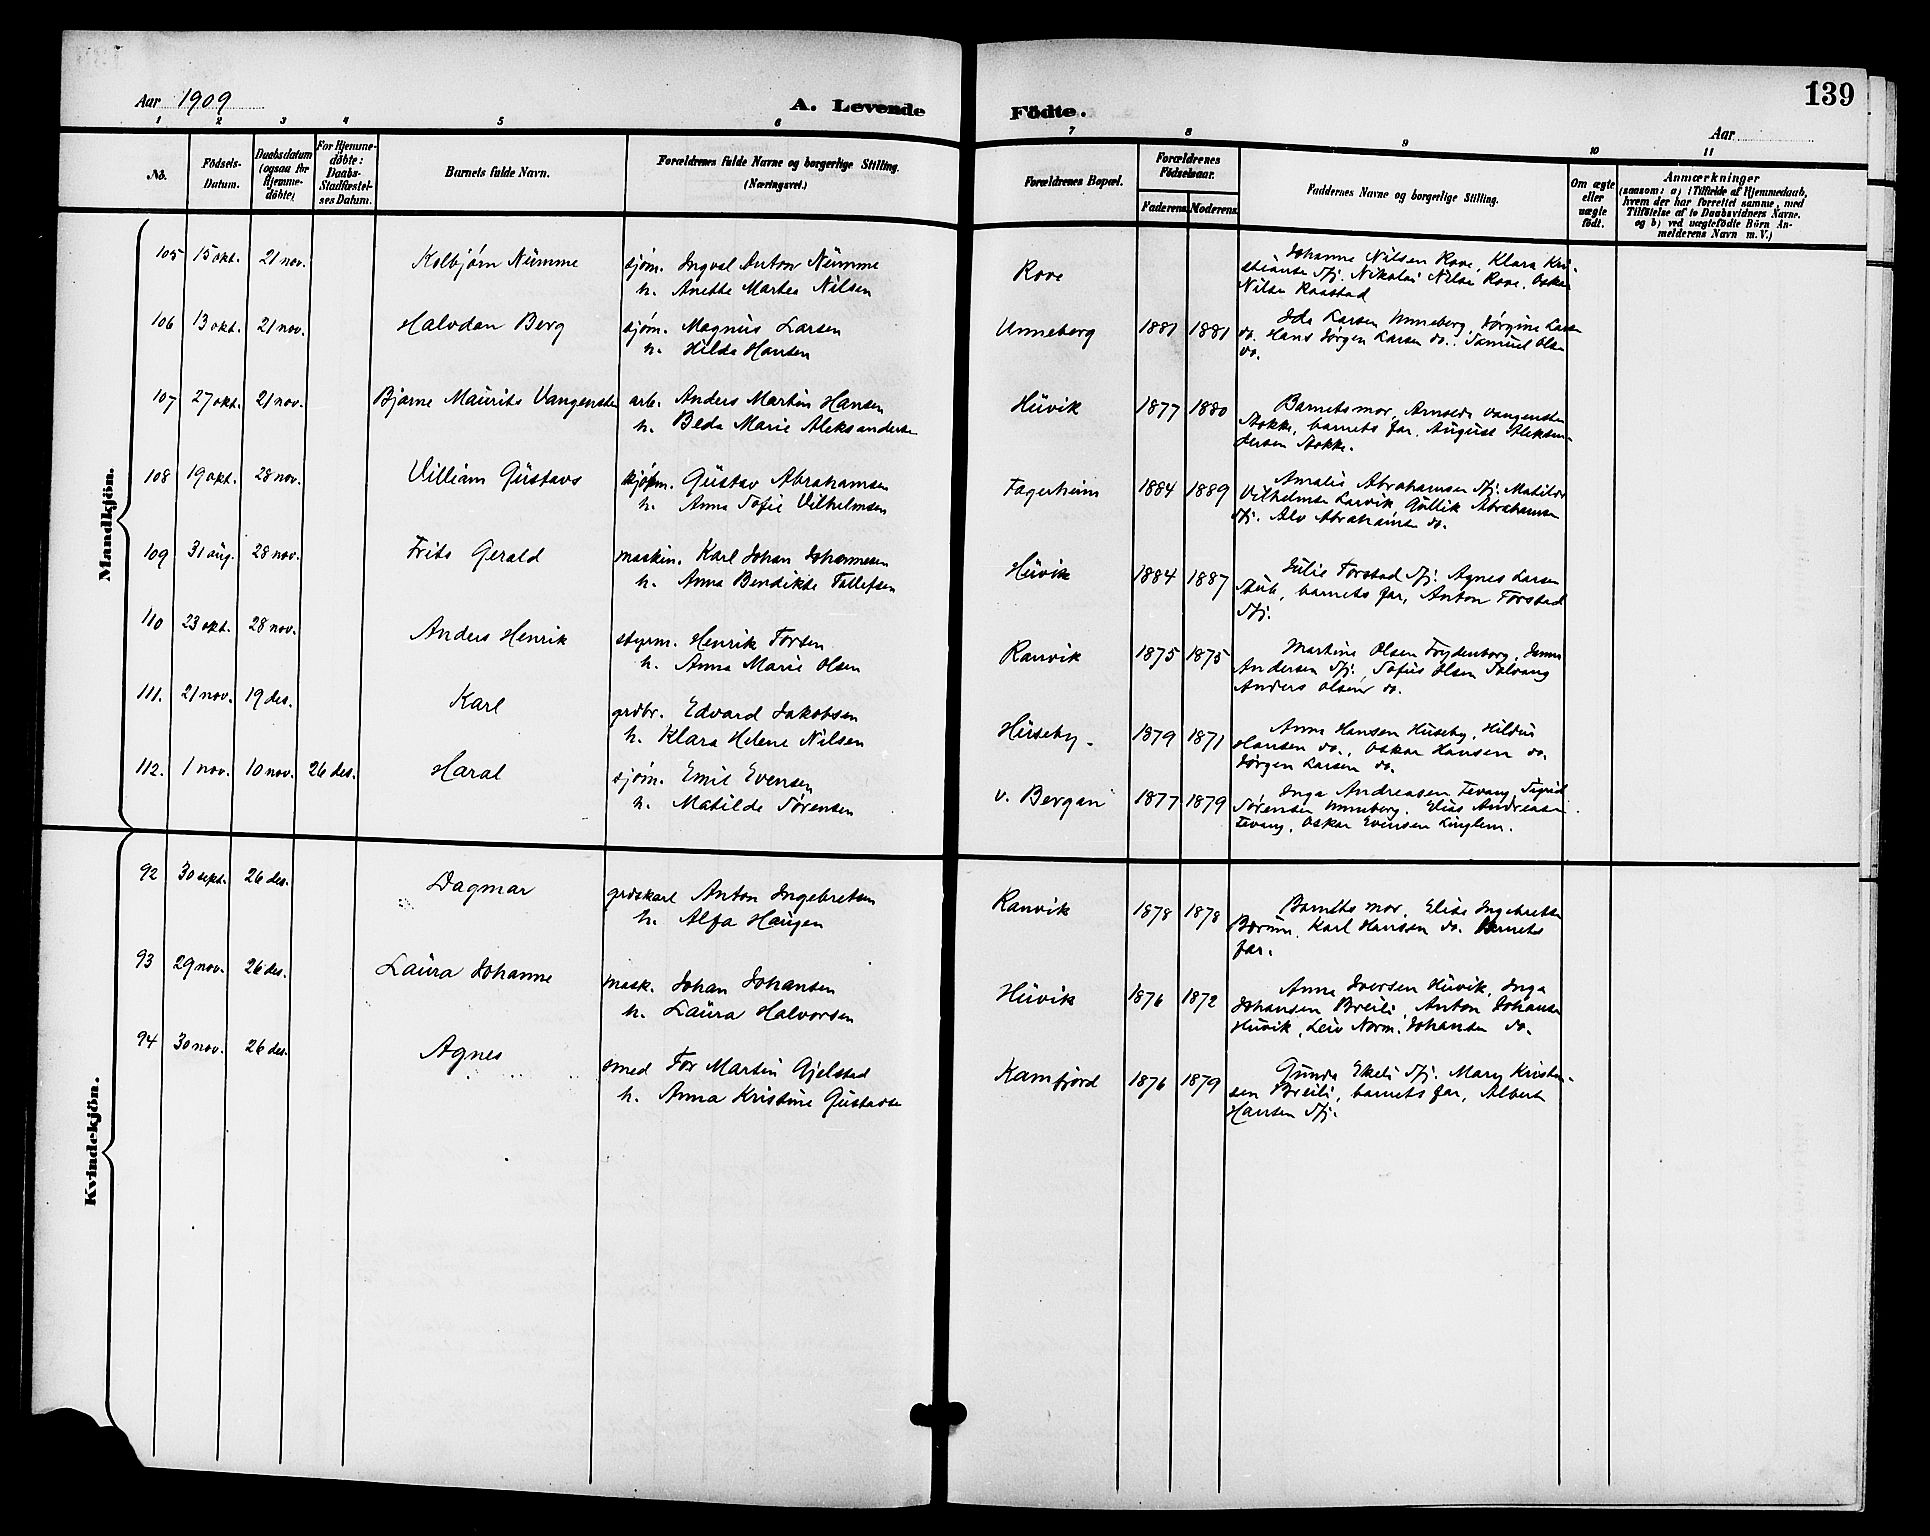 139
Aar 1909
A. Levende Födte.
Aar
1 2 3 4 5 6 7 8 9 10 11
No.
Födsels-
Datum.
Daabsdatum
(ogsaa for
Hjemme-
döbte)
For Hjemme-
döbte:
Daabs-
Stadfæstel-
ses Datum.
Barnets fulde Navn.
Forældrenes fulde Navne og borgerlige Stilling.
(Næringsvei.)
Forældrenes Bopæl.
Forældrenes
Födselsaar.
Faderens Moderens
Faddernes Navne og borgerlige Stilling.
Om ægte
eller
uægte
födt.
Anmærkninger
(saasom: a) i Tilfælde af Hjemmedaab,
hvem der har forrettet samme, med
Tilföielse af to Daabsvidners Navne,
og b) ved uægtefödte Börn An-
melderens Navn m. V.)
Mandkjön.
105 15 okt. 21 nov. Kolbjørn Numme
sjøm. Ingval Anton Numme
h. Anette Martea Nilsen
Rove
Johanne Nilsen Rove, Klara Kri-
stiansen Sfj. Nikolai Nilsen Rove, Oskar
Nilsen Raastad
106 13 okt. 21 nov. Halvdan Berg
sjøm. Magnus Larsen
h. Hilda Hansen
Unneberg 1881 1881
Ida Larsen Unneberg, Jørgine Larsen
do. Hans Jørgen Larsen do., Samuel Olsen
do.
107 27 okt. 21 nov. Bjarne Maurits Vangensten
arb. Anders Martin Hansen
h. Beda Marie Aleksandersen
Huvik 1877 1880
Barnets mor, Arnolda Vangensten
Stokke, barnets far, August Aleksan-
dersen Stokke.
108 19 okt. 28 nov. Villiam Gustavs
sjøm. Gustav Abrahamsen
h. Anna Sofie Vilhelmsen
Fagerheim 1884 1889
Amalie Abrahamsen Sfj. Matilde
Vilhelmsen Larvik, Gullik Abrahamsen
Sfj. Alv Abrahamsen do.
109 31 aug. 28 nov. Frits Gerald
maskin. Karl Johan Johannesen
h. Anna Bendikte Tollefsen
Huvik 1884 1887
Julie Torstad Sfj. Agnes Larsen
Stub, barnets far, Anton Torstad
Sfj.
110 23 okt. 28 nov. Anders Henrik
styrm. Henrik Torsen
h. Anna Marie Olsen
Ranvik 1875 1875
Martine Olsen Frydenborg, Emma
Andersen Sfj., Sofus Olsen Solvang
Anders Olsen do.
111. 21 nov. 19 des. Karl
grdbr. Edvard Jakobsen
h. Klara Helene Nilsen
Huseby. 1879 1871
Anna Hansen Huseby, Hildur
Hansen do., Oskar Hansen do.
Jørgen Larsen do.
112. 1 nov. 10 nov. 26 des. Haral
sjøm. Emil Evensen
h. Matilde Sørensen
v. Bergan 1877 1879
Inga Andreasen Tevang, Sigrid
Sørensen Unneberg, Elias Andreasen
Tevang, Oskar Evensen Lingelem.
Kvindekjön.
92 30 sept. 26 des. Dagmar
grdskarl Anton Ingebretsen
h. Alfa Haugen
Ranvik 1878 1878
Barnets mor, Elise Ingebretsen
Bærum, Karl Hansen do. Barnets
far.
93 29 nov. 26 des. Laura Johanne
mask. Johan Johansen
h. Laura Halvorsen
Huvik 1876 1872
Anna Iversen Huvik, Inga
Johansen Breili, Anton Johansen
Huvik, Leiv Norm. Johansen do.
94 30 nov. 26 des. Agnes
smed Tor Martin Gjelstad
h. Anna Kristine Gustavsen
Kamfjord 1876 1879
Gunda Ekeli Sfj. Mary Kristen-
sen Breili, barnets far, Albert
Hansen Sfj.